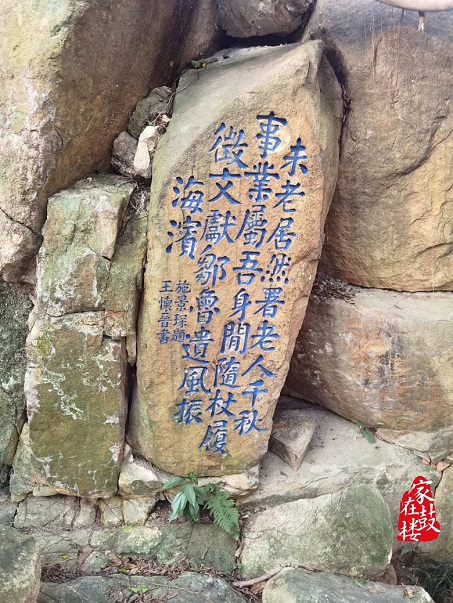 未老居然署老人千秋
事業屬吾身閒隨杖履
徵文獻鄒魯遺風振
海濱
施景琛題
王懷晉書
家在
鼓楼